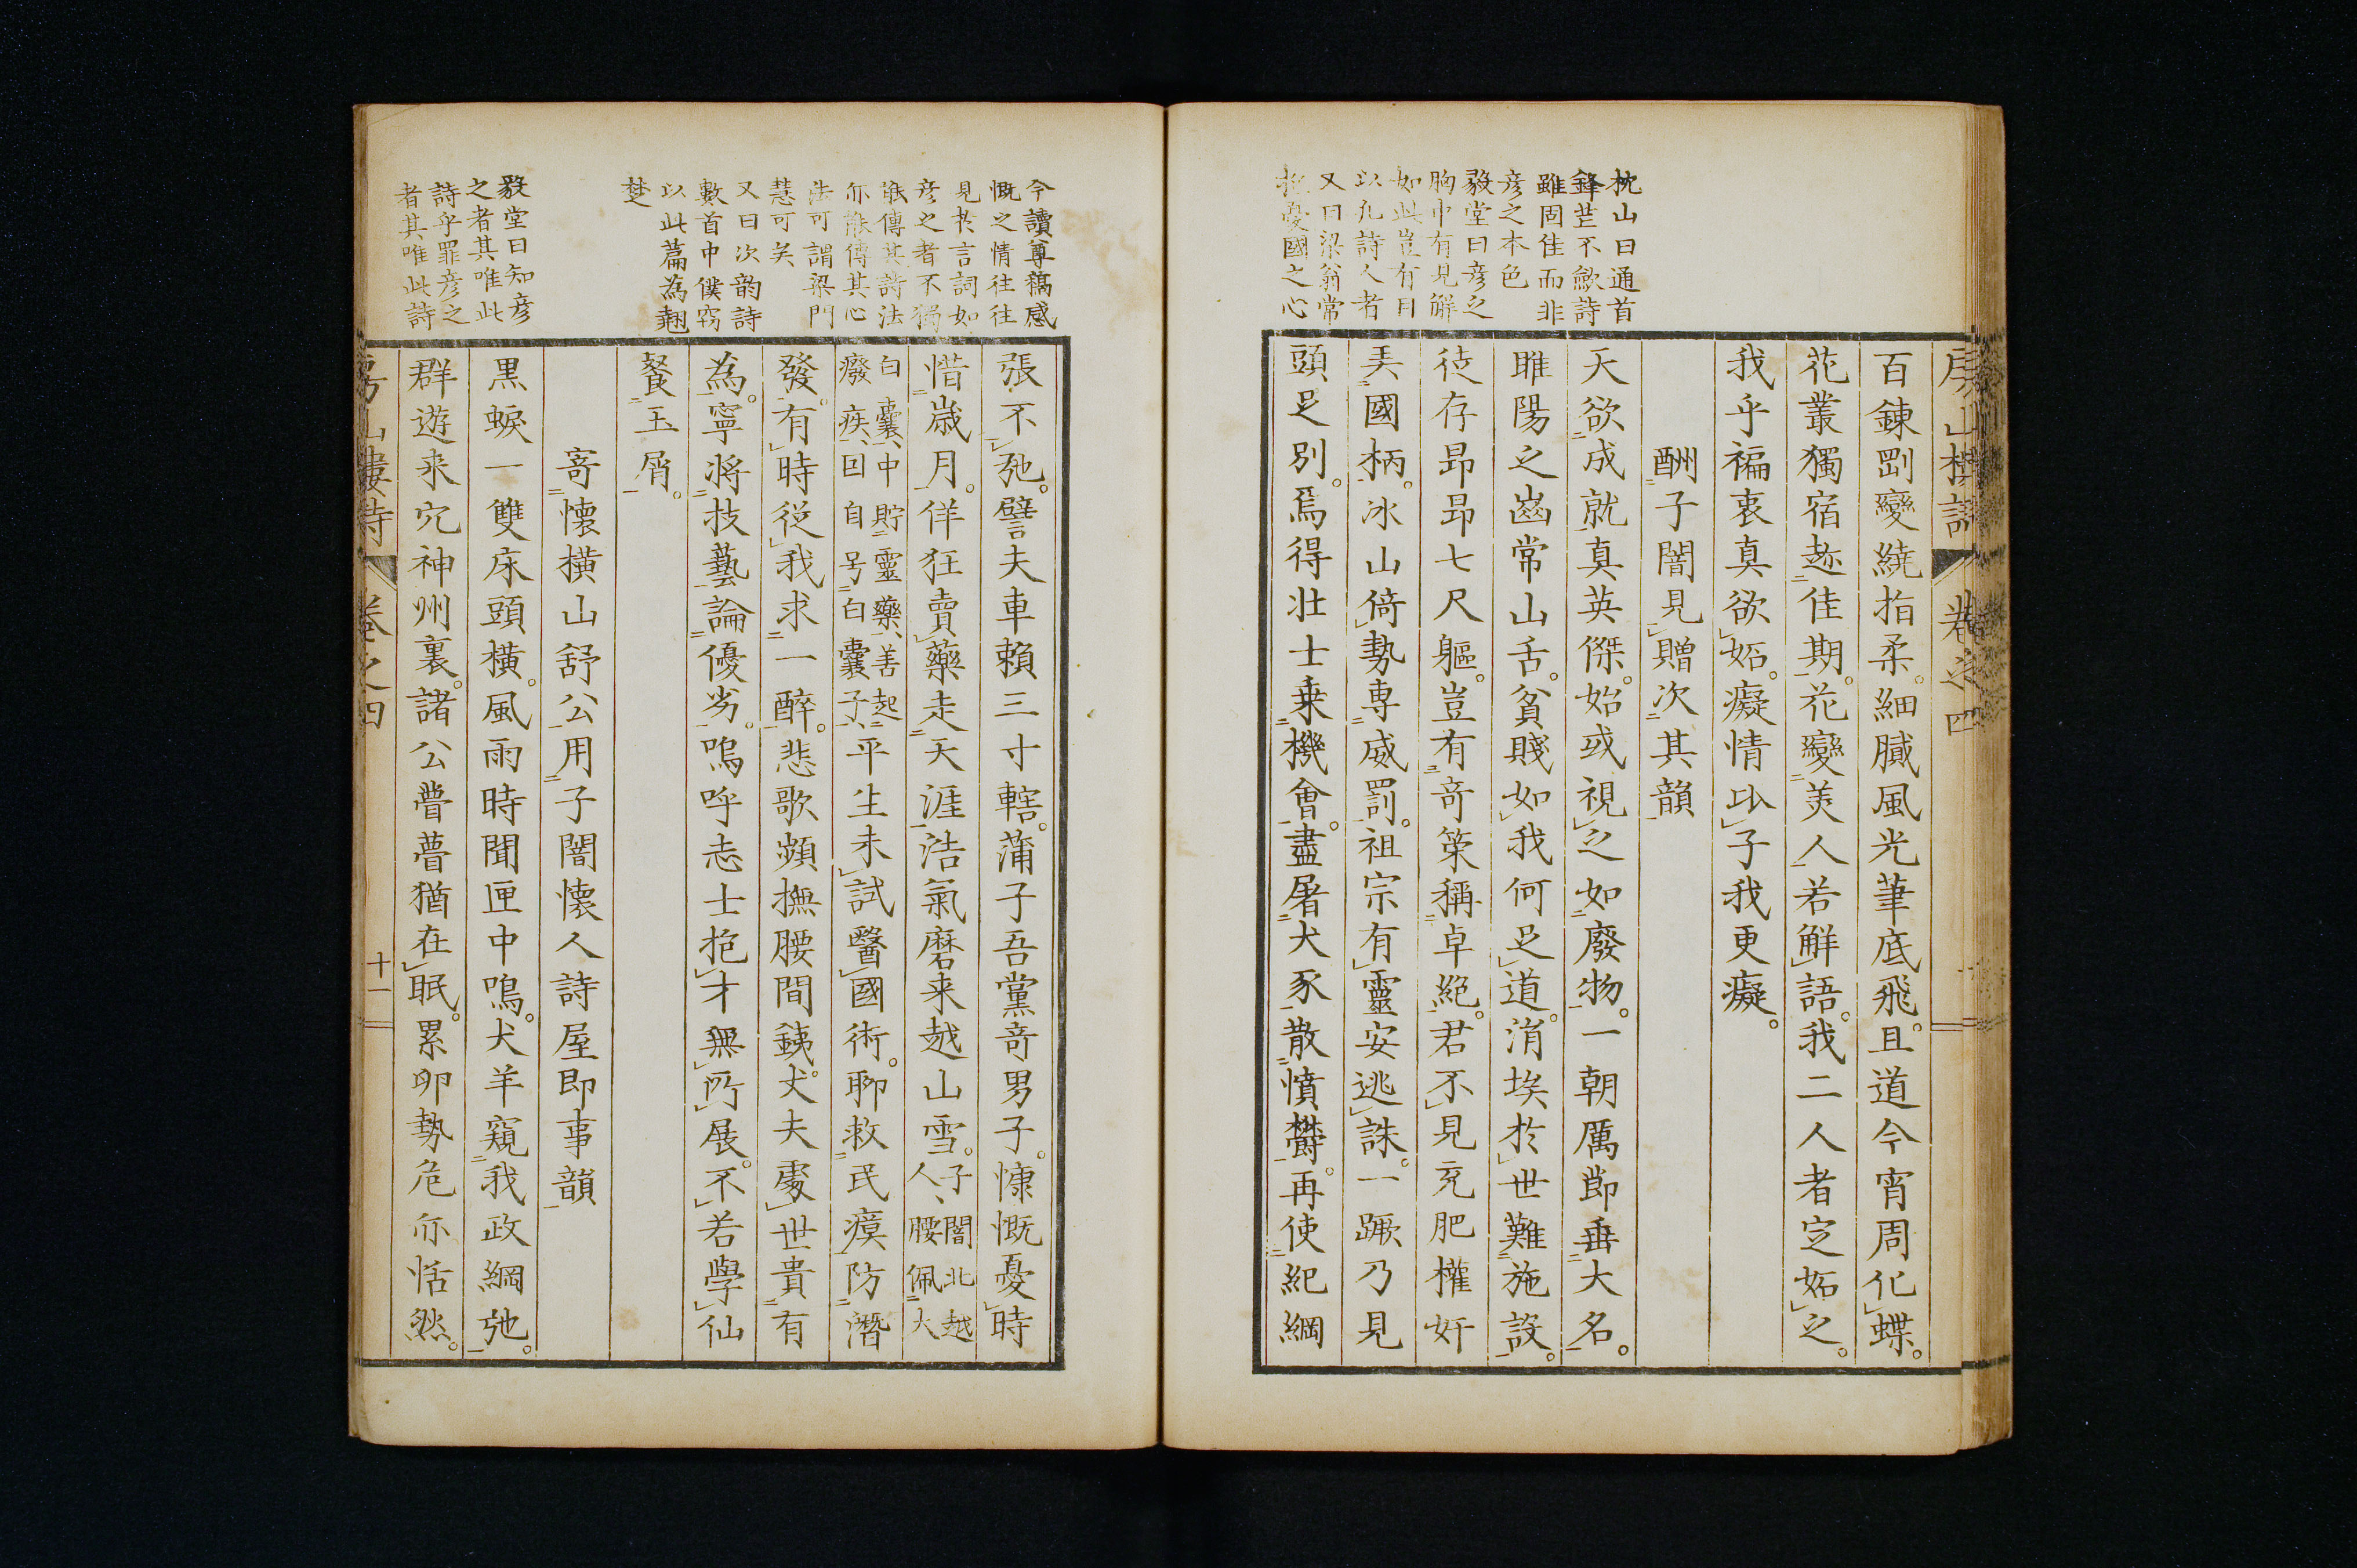 枕山曰通首
鋒芒不歛詩
雖固佳而非
彦之本色
毅堂曰彦之
胸中有見解
如此豈有目
以凡詩人者
又曰梁翁常
抱憂國之心
房山樓詩
卷之四
百鍊剛變繞指柔。細膩風光筆底飛。且道今宵周化蝶。
花叢獨宿趂佳期。花變美人若鮮語。我二人者定妬之。
我乎褊衷真欲妬。癡情比子我更癡。
酬子闇見贈次其韻
天欲成就真英傑。始或視之如廢物。一朝厲節垂大名。
睢陽之齒常山舌。貧賤如我何足道。涓埃於世難施設。
徒存昂昂七尺軀。豈有竒策稱卓絶。君不見充肥權奸
弄國柄。冰山倚勢專威罰。祖宗有靈安逃誅。一蹶乃見
頭足別。焉得壮士乗機會。盡屠犬豕散憤欝。再使紀綱
今讀尊稿感
慨之情往往
見於言詞如
彦之者不獨
能傳其詩法
亦能傳其心
法可謂梁門
慧可矣
又曰次韵詩
數首中僕窃
以此篇為翹
楚
毅堂曰知彦
之者其唯此
詩乎罪彦之
者其唯此詩
張不弛。譬夫車賴三寸轄。蒲子吾黨竒男子。慷慨憂時
惜歳月。佯狂賣藥走天涯。浩氣磨来越山雪。子闇北越人、腰佩大
白囊、中貯靈藥、善起癈疾、因自号白囊子、平生未試醫國術。聊救民瘼防潛
發。有時從我求一醉。悲歌頻撫腰間鋏。丈夫處世貴有
為。寧将技藝論優劣。嗚呼志士抱才無所展。不若學仙
餐玉屑。
寄懷横山舒公用子闇懷人詩屋即事韻
黒蛟一雙床頭横。風雨時聞匣中鳴。犬羊窺我政綱弛。
群遊来穴神州裏。諸公瞢瞢猶在眠。累卵勢危亦恬然。
房山樓詩
卷之四
十一